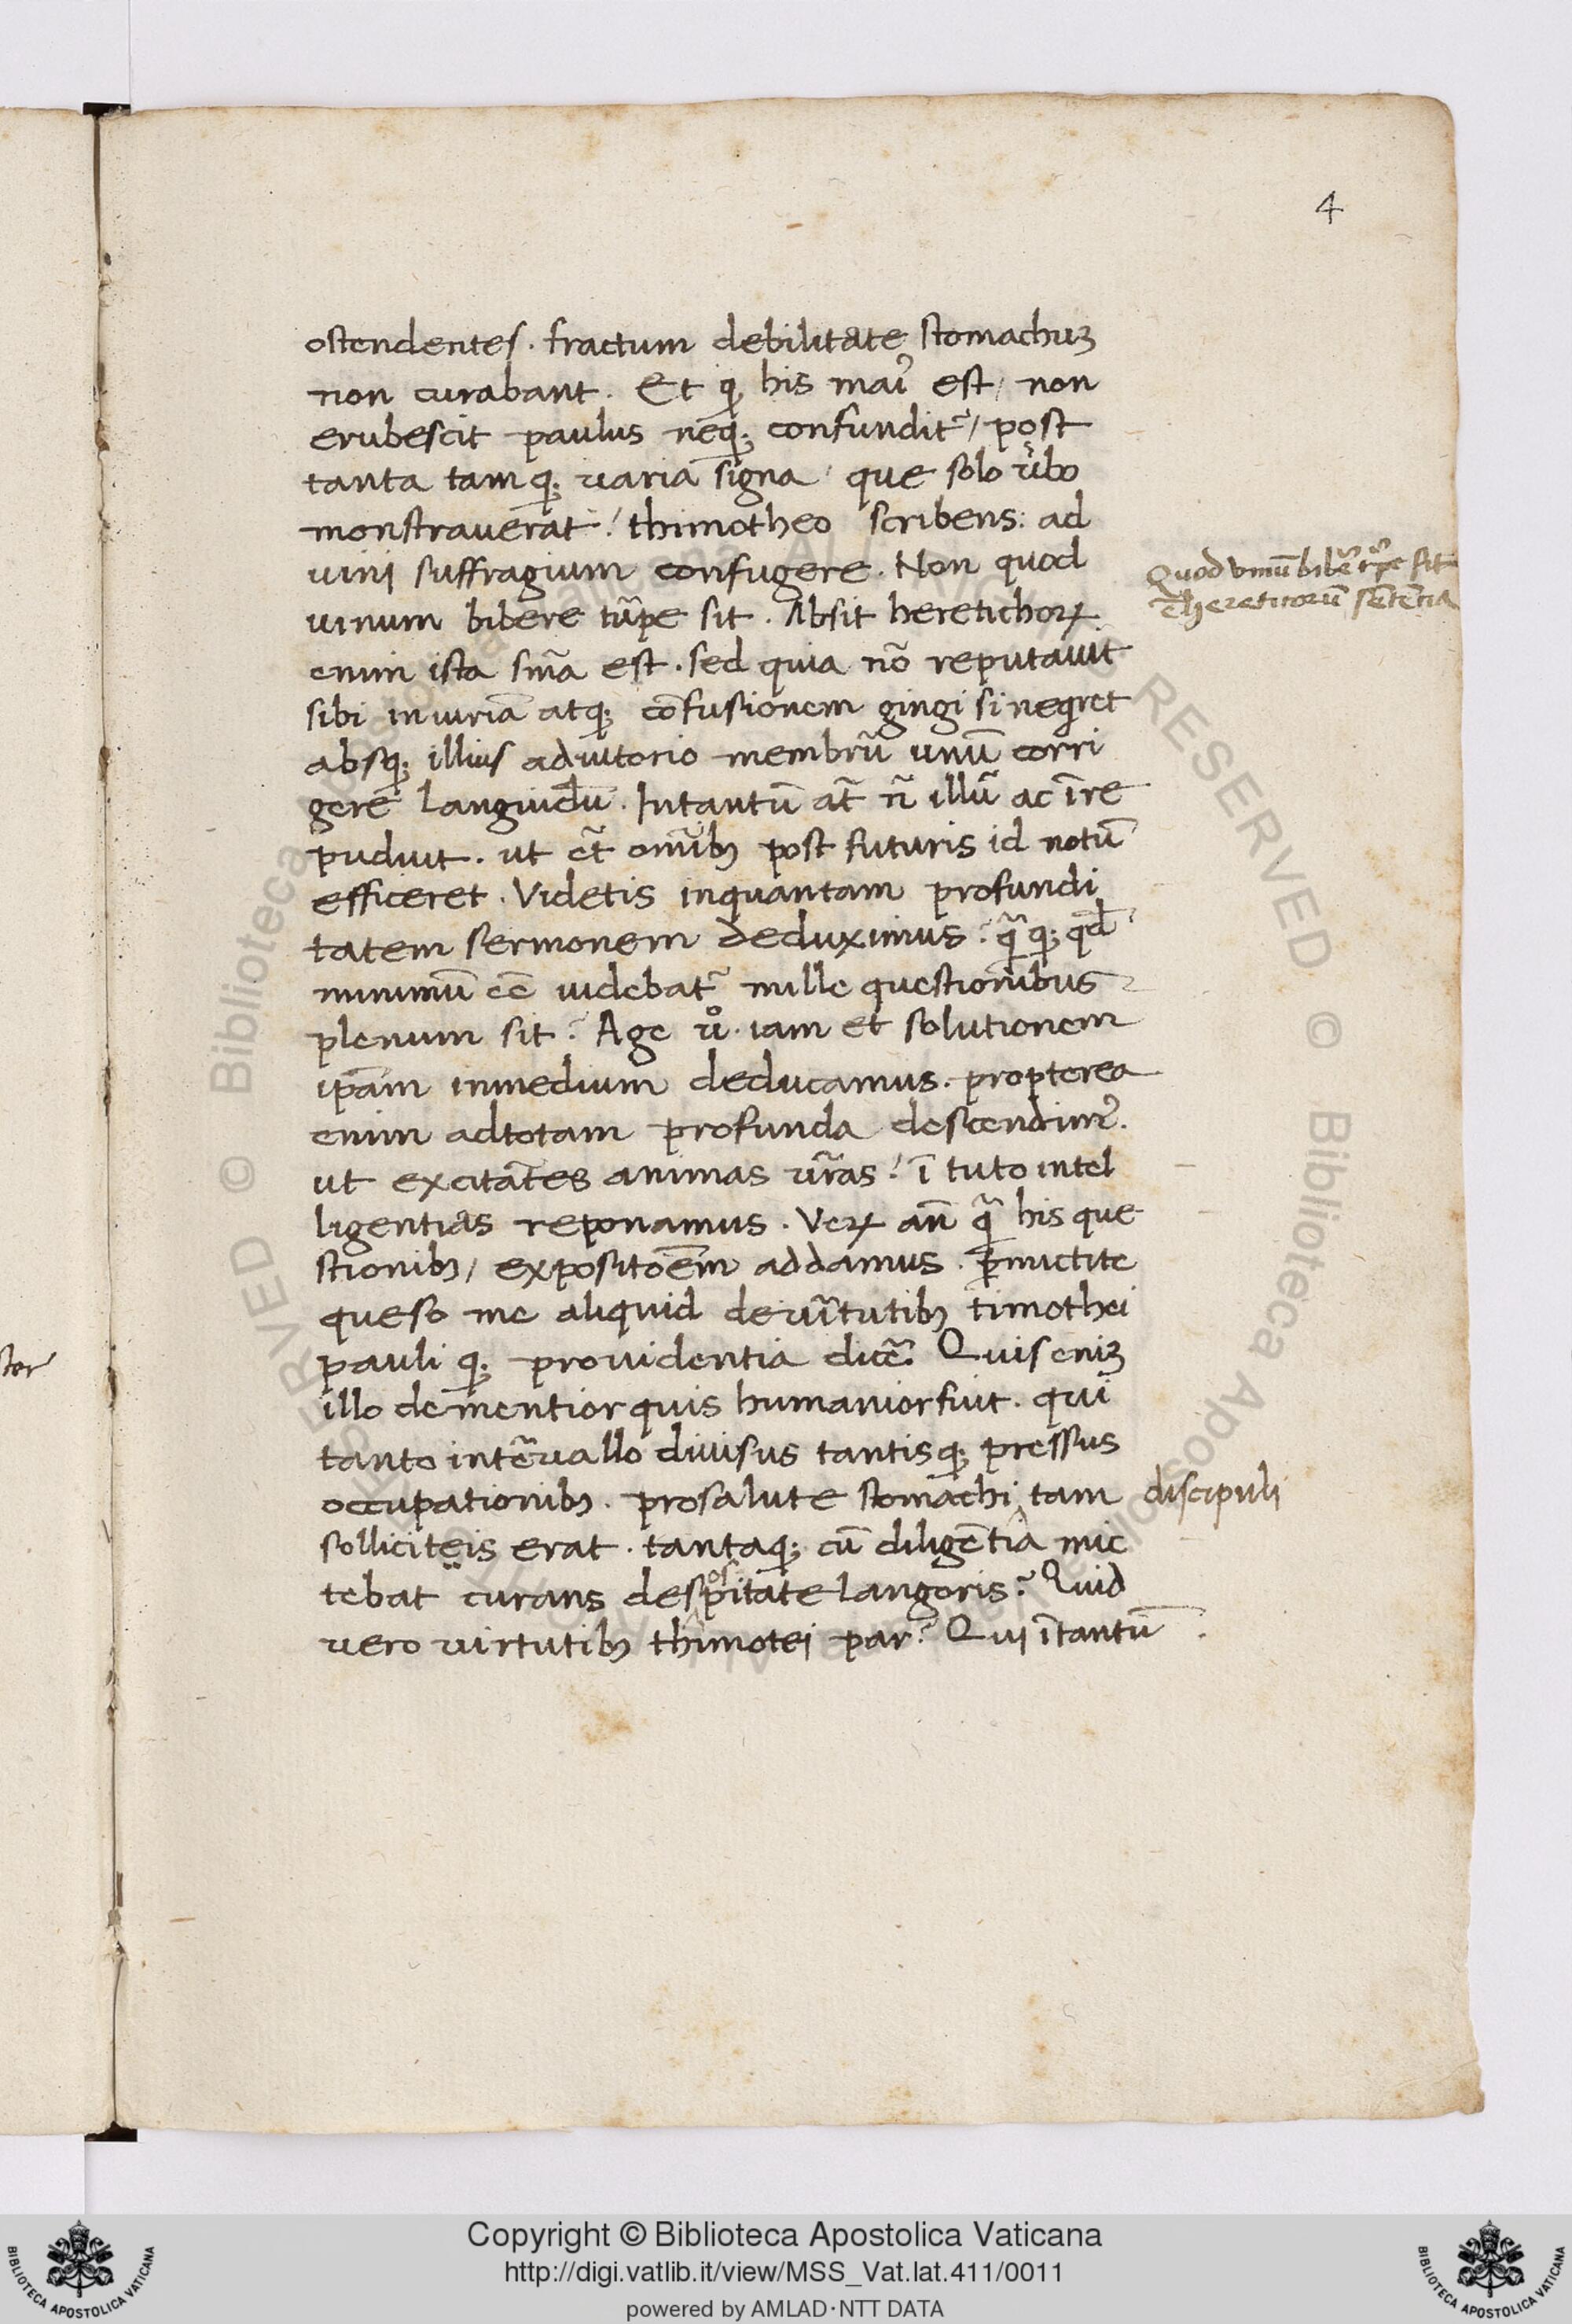 4
ostendentes . fractum debilitate stomachuꝫ
non curabant . Et ꝙ his mai᷒ est / non
erubescit paulus neqꝫ confundit᷑ / post
tanta tamqꝫ varia signa / que solo u̓bo
monstrauerat / thimotheo scribens : ad
uinj suffragium confugere . Non quod
uinum bibere tũpe sit . Absit heretichoꝝ
enim ista sñia est . sed quia nõ reputauit
sibi iniuriã atqꝫ cõfusionem gingi si neq̃ret
absqꝫ illius adiutorio membrũ unũ corri
gere languidũ . Intantũ at̃ ñ illũ ac ĩre
puduit . ut et̃ omĩbꝫ post futuris id notũ
efficeret . Videtis inquantam profundi
tatem sermonem deduximus ? q̃qꝫ qd̃
minimũ eẽ uidebat᷑ mille questionibus
plenum sit ? Age uͦ . iam et solutionem
ip̃am inmedium deducamus . propterea
enim adtotam profunda descendim᷒ .
ut excitãtes animas ur̃as / ĩ tuto intel
ligentias reponamus . Veꝝ añ q̃ his que
stionibꝫ / expositõem addamus . ꝑmictite
queso me aliquid deuĩtutibꝫ timothei
pauli qꝫ prouidentia dicẽ . Quis eniꝫ
illo dementior quis humanior fuit . qui
tanto intẽruallo diuisus tantisqꝫ pressus
occupationibꝫ . prosalute stomachi tam
solliciteis erat . tantaqꝫ cũ diligẽtia mic
tebat curans despositate langoris ? Quid
vero virtutibꝫ thimotei par ? Qui ĩtantũ
Quod uinũ bibẽ tr̃pe sit
ẽ hereticorũ sẽtẽtia
discipuli
Copyright © Biblioteca Apostolica Vaticana
http://digi.vatlib.it/view/MSS_Vat.lat.411/0011
powered by AMLAD·NTT DATA
BIBLIOTECA APOSTOLICA VATICANA
BIBLIOTECA APOSTOLICA VATICANA